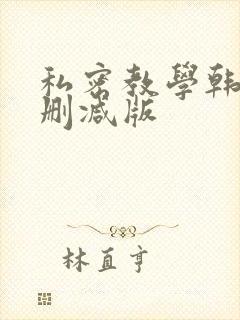 私密教學韩
删减版
林直亨